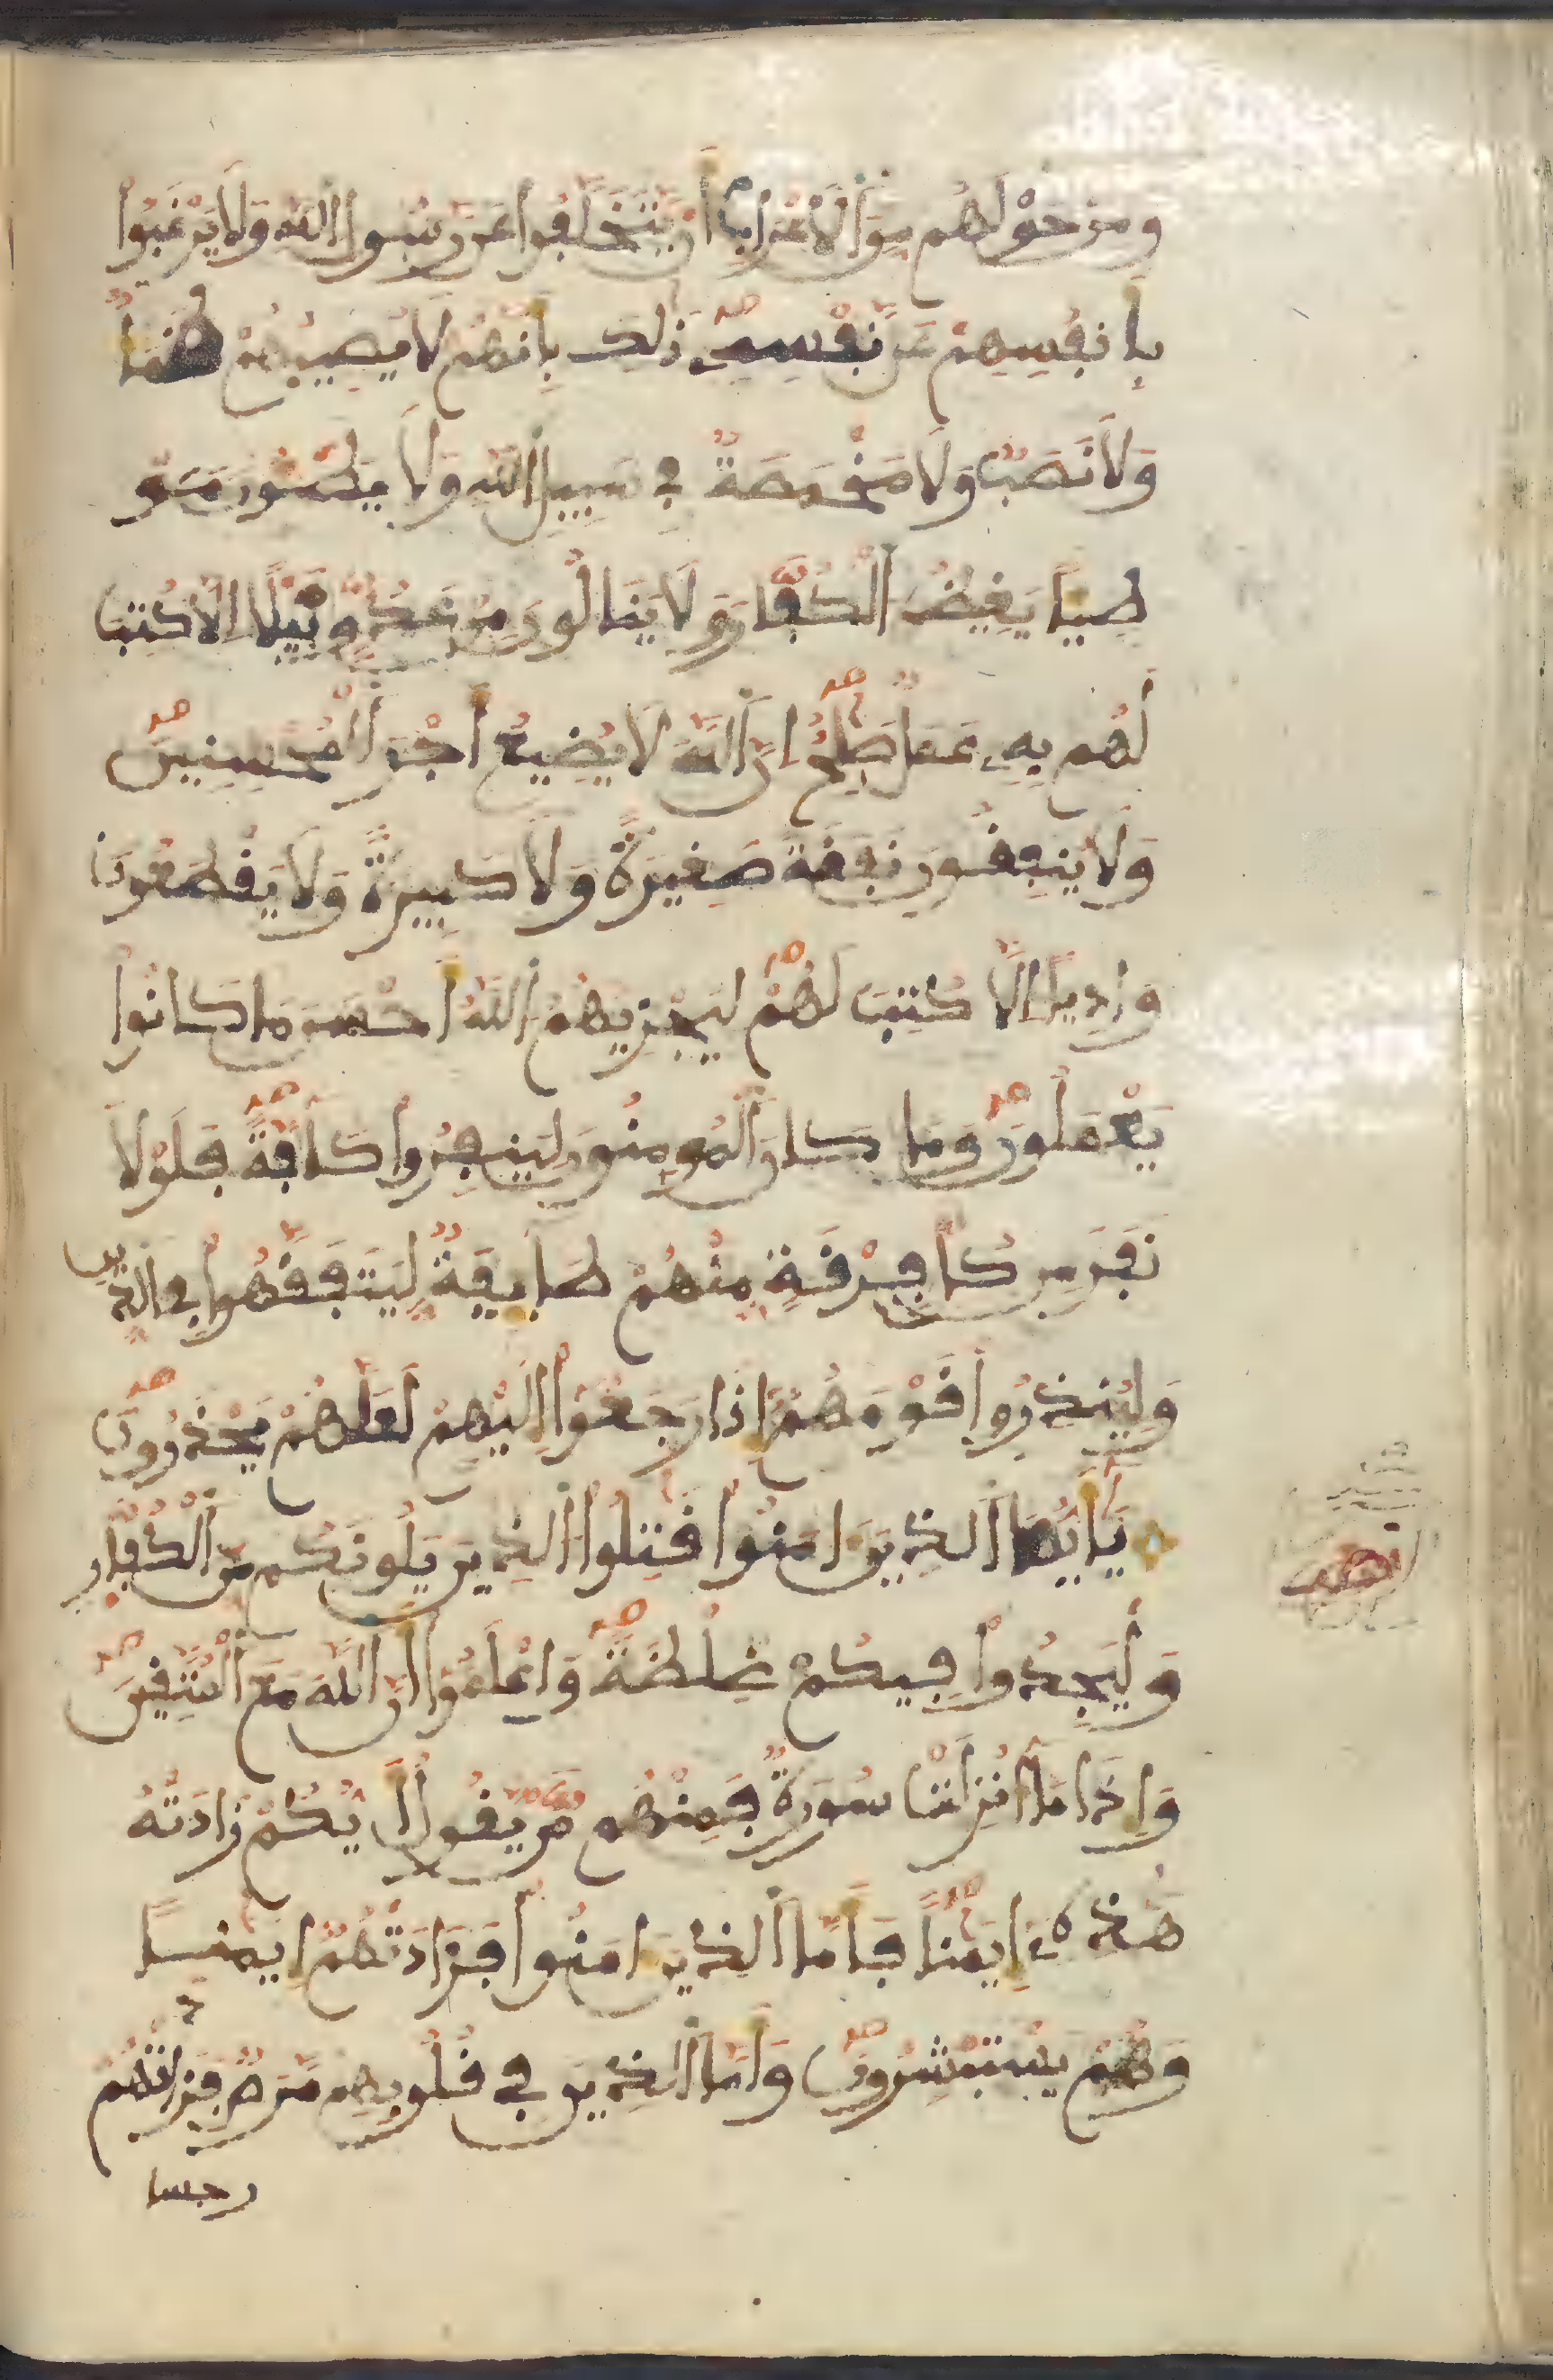 وَمَنْ حَوْلَهُم مِّنَ ٱلَاعْرَابِ أَنْ يَّتَخَلَّفُوا عَن رَّسُولِ اللَّهِ وَلَا يَرْغَبُوا
بِأَنفُسِهِمْ عَن نَّفْسِهِ ذَٰلِكَ بِأَنَّهُمْ لَا يُصِيبُهُمْ ظَمَأٌ
وَلَا نَصَبٌ وَلَا مَخْمَصَةٌ فِي سَبِيلِ اللَّهِ وَلَا يَطَـُٔونَ مَوْ
طِئاً يَغِيظُ ٱلْكُفَّارَ وَلَا يَنَالُونَ مِنْ عَدُوٍّ نَّيْلًا اِلَّا كُتِبَ
لَهُم بِهِ عَمَلٌ صَٰلِحٌ اِنَّ ٱللَّهَ لَا يُضِيعُ أَجْرَ ٱلْمُحْسِنِينَ
وَلَا يُنفِقُونَ نَفَقَةً صَغِيرَةً وَلَا كَبِيرَةً وَلَا يَقْطَعُونَ
وَادِياً اِلَّا كُتِبَ لَهُمْ لِيَجْزِيَهُمُ ٱللَّهُ أَحْسَنَ مَا كَانُوا
يَعْمَلُونَ وَمَا كَانَ ٱلْمُومِنُونَ لِيَنفِرُوا كَآفَّةً فَلَوْلَا
نَفَرَ مِن كُلِّ فِرْقَةٍ مِّنْهُمْ طَآئِفَةٌ لِّيَتَفَقَّهُوا فِي الدِّينِ
وَلِيُنذِرُوا قَوْمَهُمُۥ إِذَا رَجَعُوا إِلَيْهِمْ لَعَلَّهُمْ يَحْذَرُونَ
يَٰٓأَيُّهَا ٱلذِينَ ءَامَنُوا قَٰتِلُوا ٱلذِينَ يَلُونَكُم مِّنَ ٱلْكُفَّارِ
وَلْيَجِدُوا فِيكُمْ غِلْظَةً وَاعْلَمُوا أَنَّ ٱللَّهَ مَعَ ٱلْمُتَّقِينَ
وَإِذَا مَآ أُنزِلَتْ سُورَةٌ فَمِنْهُم مَّنْ يَّقُولُ أَيُّكُمْ زَادَتْهُ
هَٰذِهِۦٓ إِيمَٰناً فَأَمَّا ٱلذِينَ ءَامَنُوا فَزَادَتْهُمُۥٓ إِيمَٰناً
وَهُمْ يَسْتَبْشِرُونَ وَأَمَّا ٱلذِينَ فِي قُلُوبِهِم مَّرَضٌ فَزَادَتْهُمْ
رجسا